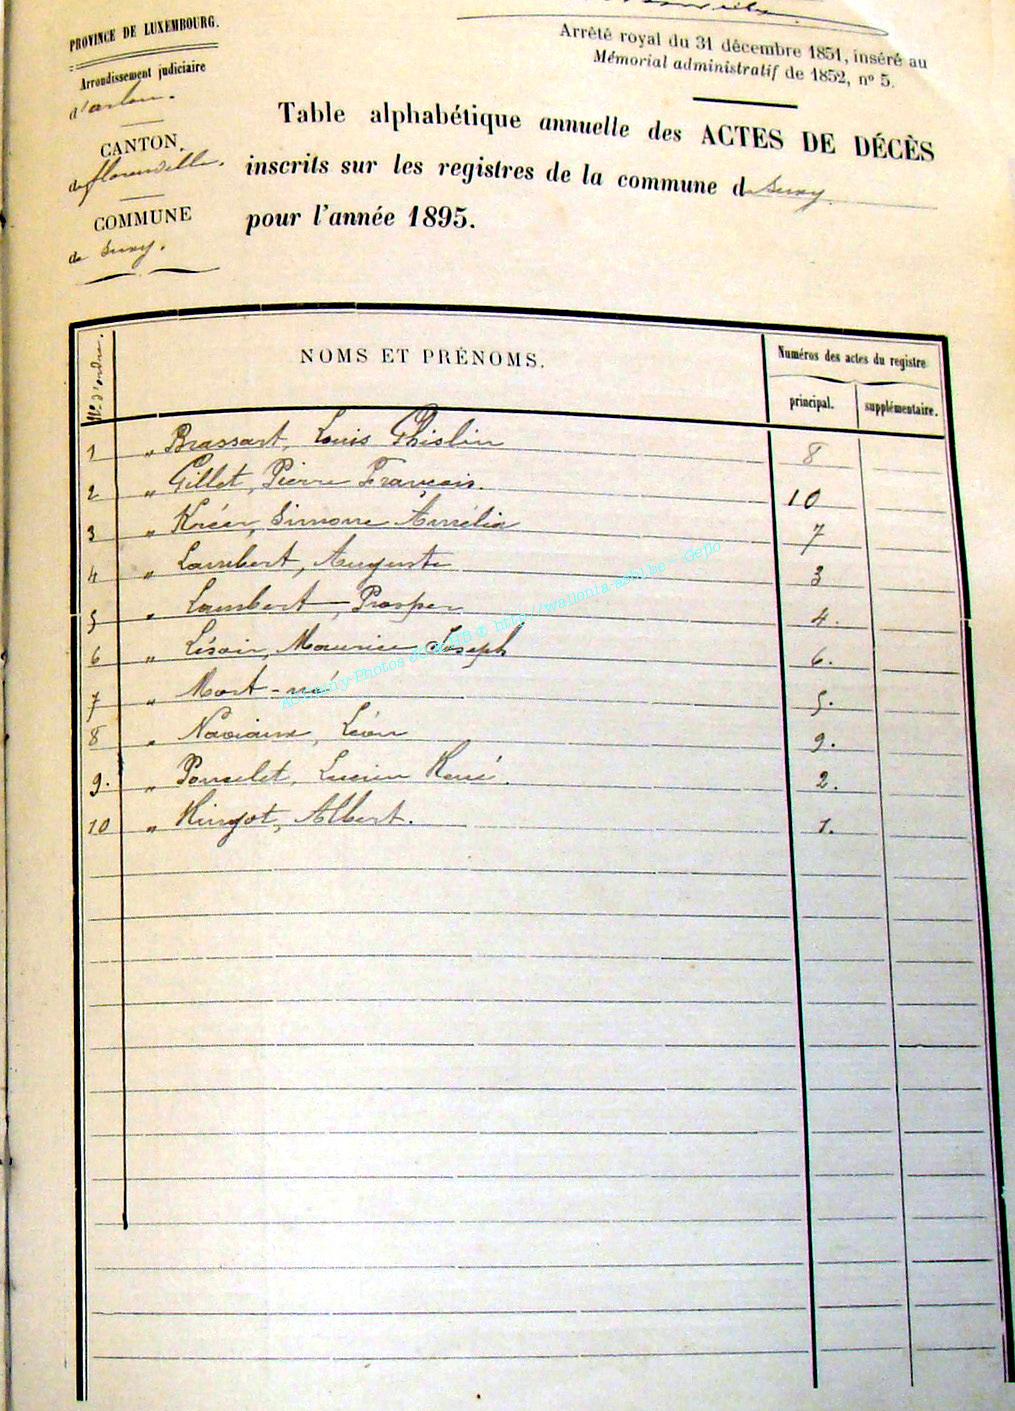 PROVINCE DE LUXEMBOURG.
Arrondissement judiciaire
d'arlon.
CANTON.
de florenville.
COMMUNE
de Suxy.
Arrêté royal du 31 décembre 1851, inséré au
Mémorial administratif de 1852, nº 5.
Table alphabétique annuelle des ACTES DE DÉCÈS
inscrits sur les registres de la commune d Suxy.
pour l'année 1895.
Nº d'ordre.
NOMS ET PRÉNOMS.
Numéros des actes du registre
principal.
supplémentaire.
1 „ Brassart, Louis Ghislin 8
2 „ Gillet, Pierre François. 10
3 „ Simone Amélia 7
4 „ Lambert, Auguste 3
5 „ Lambert, Prosper 4.
6 „ Maurice Joseph 6.
7 „ Mort-né 5.
8 „ Naviaux, Léon 9.
9. „ Poncelet, Lucien René. 2.
10 „ Albert. 1.
http://wallonia-asbl.be - Gepo